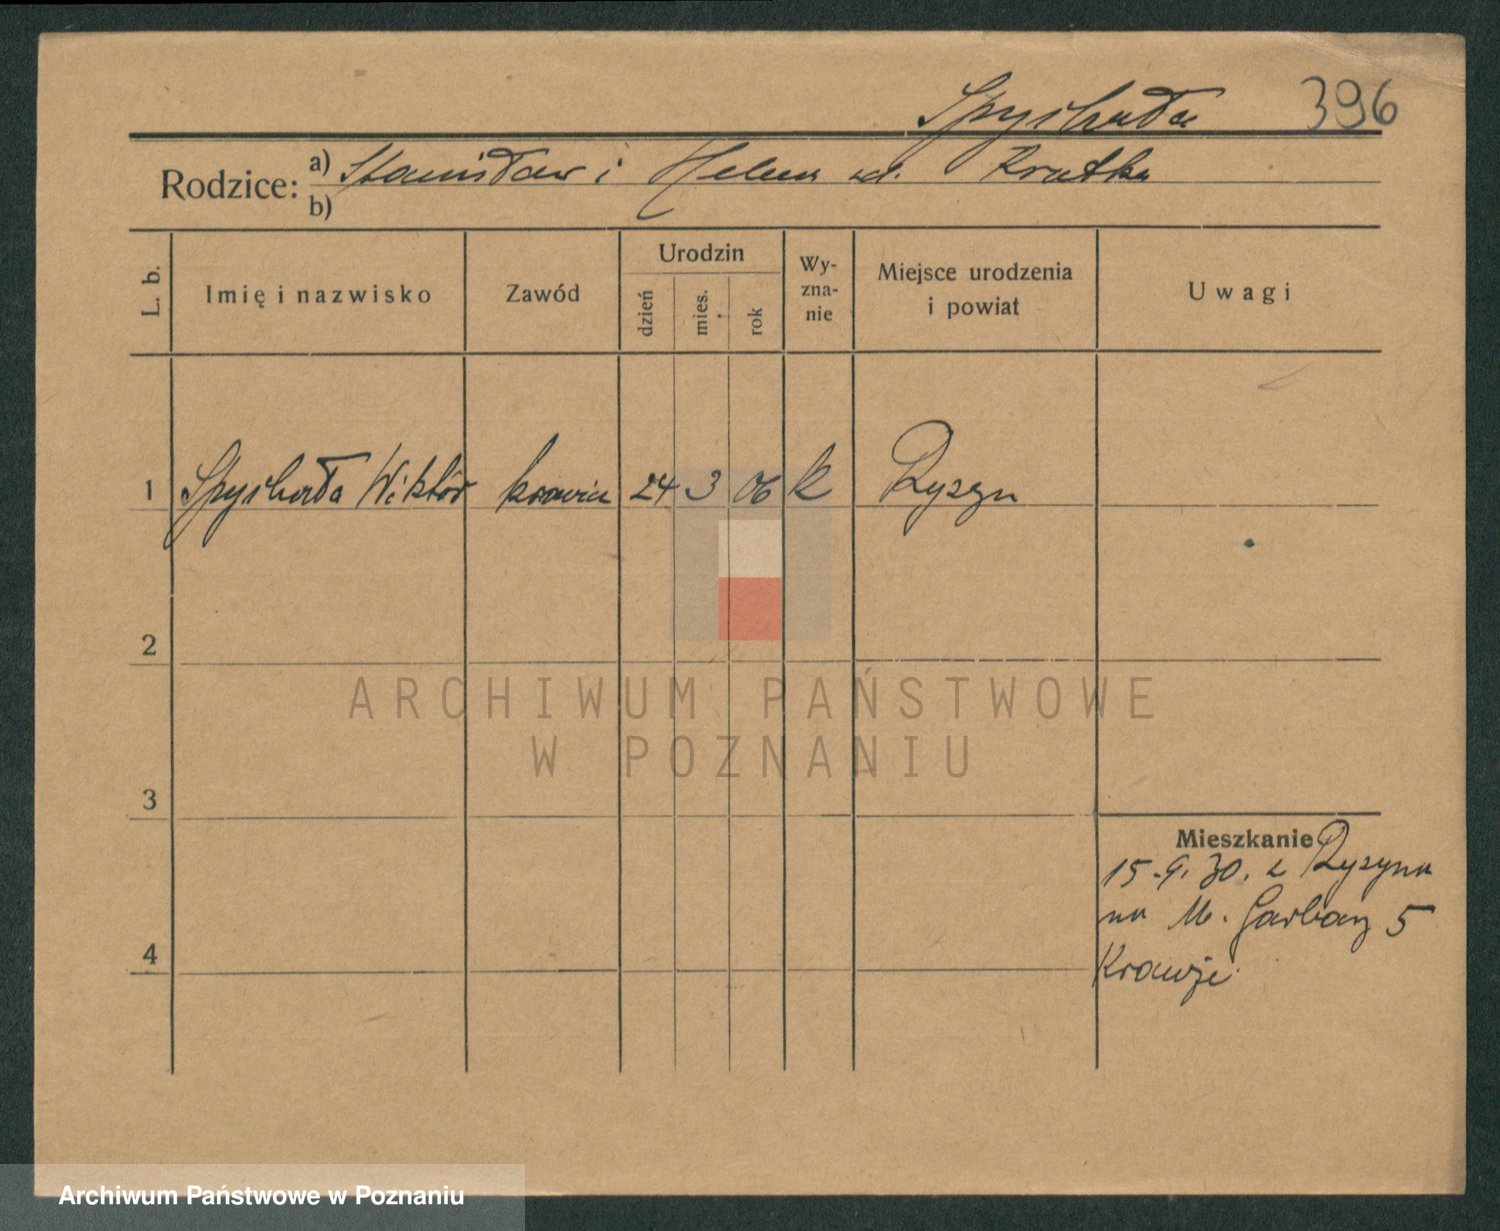 Spychała 396
Rodzice: a) Stanisław i Helena ud. Krutka
b)
L. b. Imię i nazwisko Zawód Urodzin dzień mies. rok Wy-zna-nie Miejsce urodzenia i powiat Uwagi
1 Spychała Wiktór krawiec 24 3 06 k Ryszyn
2
ARCHIWUM PAŃSTWOWE
W POZNANIU
3
Mieszkanie
15.9.30. z Ryszyna
na M. Garbary 5
4
Archiwum Państwowe w Poznaniu